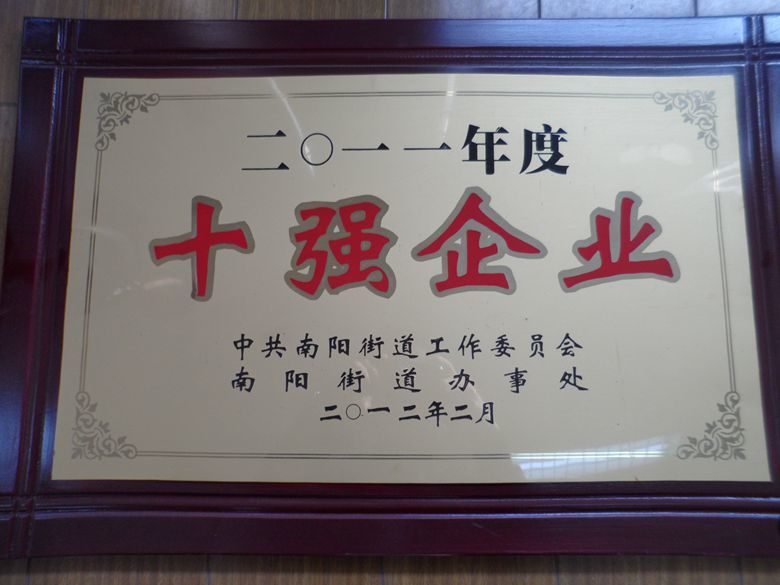 二〇一一年度
十强企业
中共南阳街道工作委员会
南阳街道办事处
二〇一二年二月